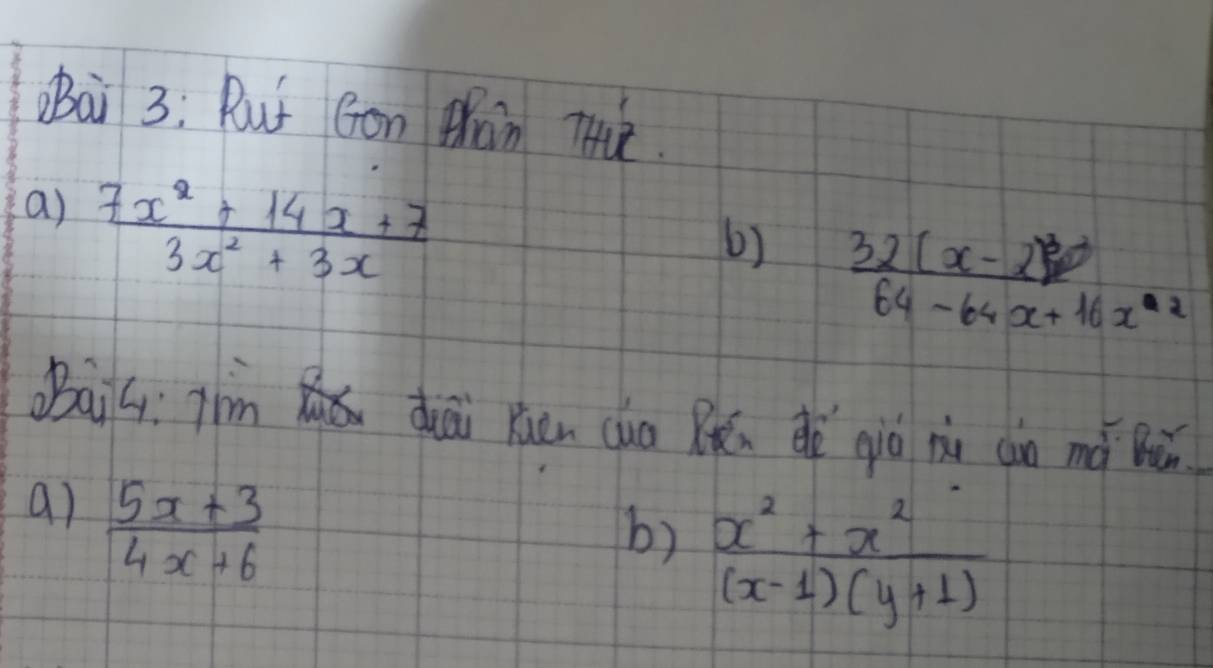 Bài 3: Rút Gọn phân Thức.
a) \frac{7x^2 + 14x + 7}{3x^2 + 3x} b) \frac{32(x-2)}{64 - 64x + 16x^2}
Bài 4: Tìm điều kiện của biến để giá trị của mỗi
a) \frac{5x + 3}{4x + 6} b) \frac{x^2 + x^2}{(x-1)(y+1)}